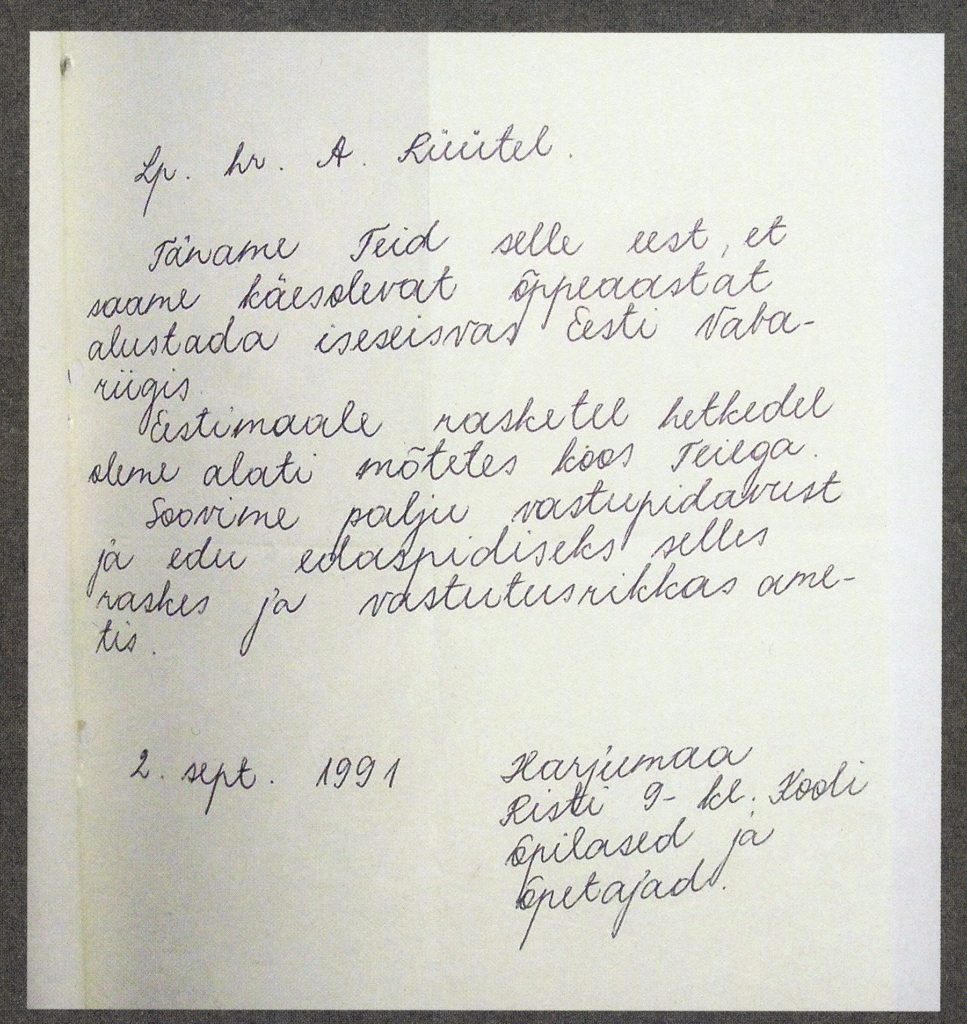 Lp. hr. A. Rüütel.
Täname Teid selle eest, et
saame käesolevat õppeaastat
alustada iseseisvas Eesti Vaba-
riigis.
Eestimaale rasketel hetkedel
oleme alati mõtetes koos Teiega.
Soovime palju vastupidavust
ja edu edaspidiseks selles
raskes ja vastutusrikkas ame-
tis.
2. sept. 1991
Harjumaa
Risti 9- kl. Kooli
õpilased ja
õpetajad.